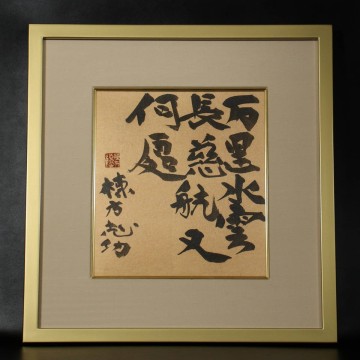 万里水雲
長慈航又
何處
棟方志功